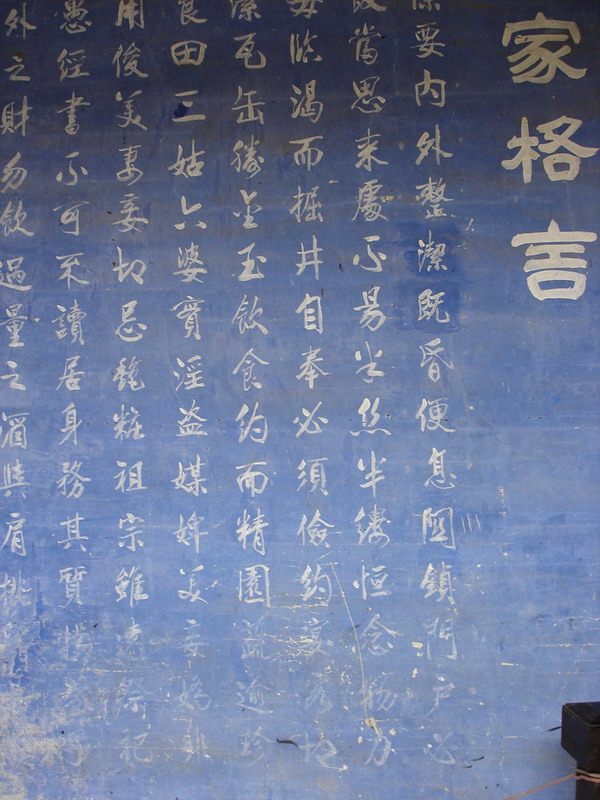 家格言
要内外整潔既昏便息関鎖門户必
當思來處不易半絲半縷恒念物力
毋臨渴而掘井自奉必須儉約宴客切
潔瓦缶勝金玉飲食約而精園蔬逾珍
良田三姑六婆實淫盜媒婢美妾嬌非
用俊美妻妾切忌艷粧祖宗雖遠祭祀
愚經書不可不讀居身務其質樸教子
外之財勿飲過量之酒與肩挑